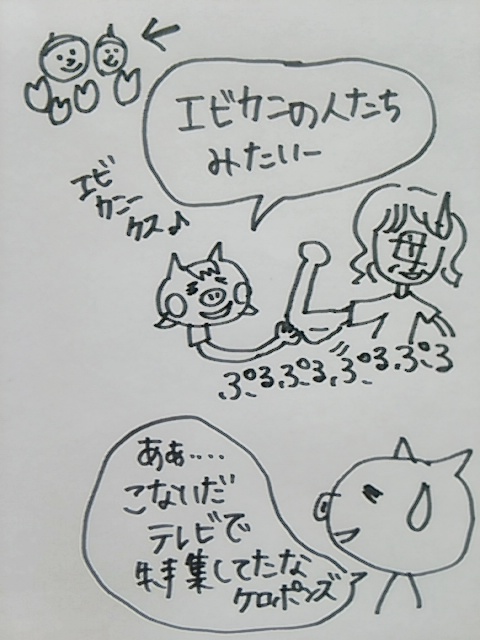 エビカニの人たち
みたいー
エビ
カニー
クス♪
母
ぷるぷるぷるぷる
ああ....
こないだ
テレビで
特集してたな
ケロポンズ